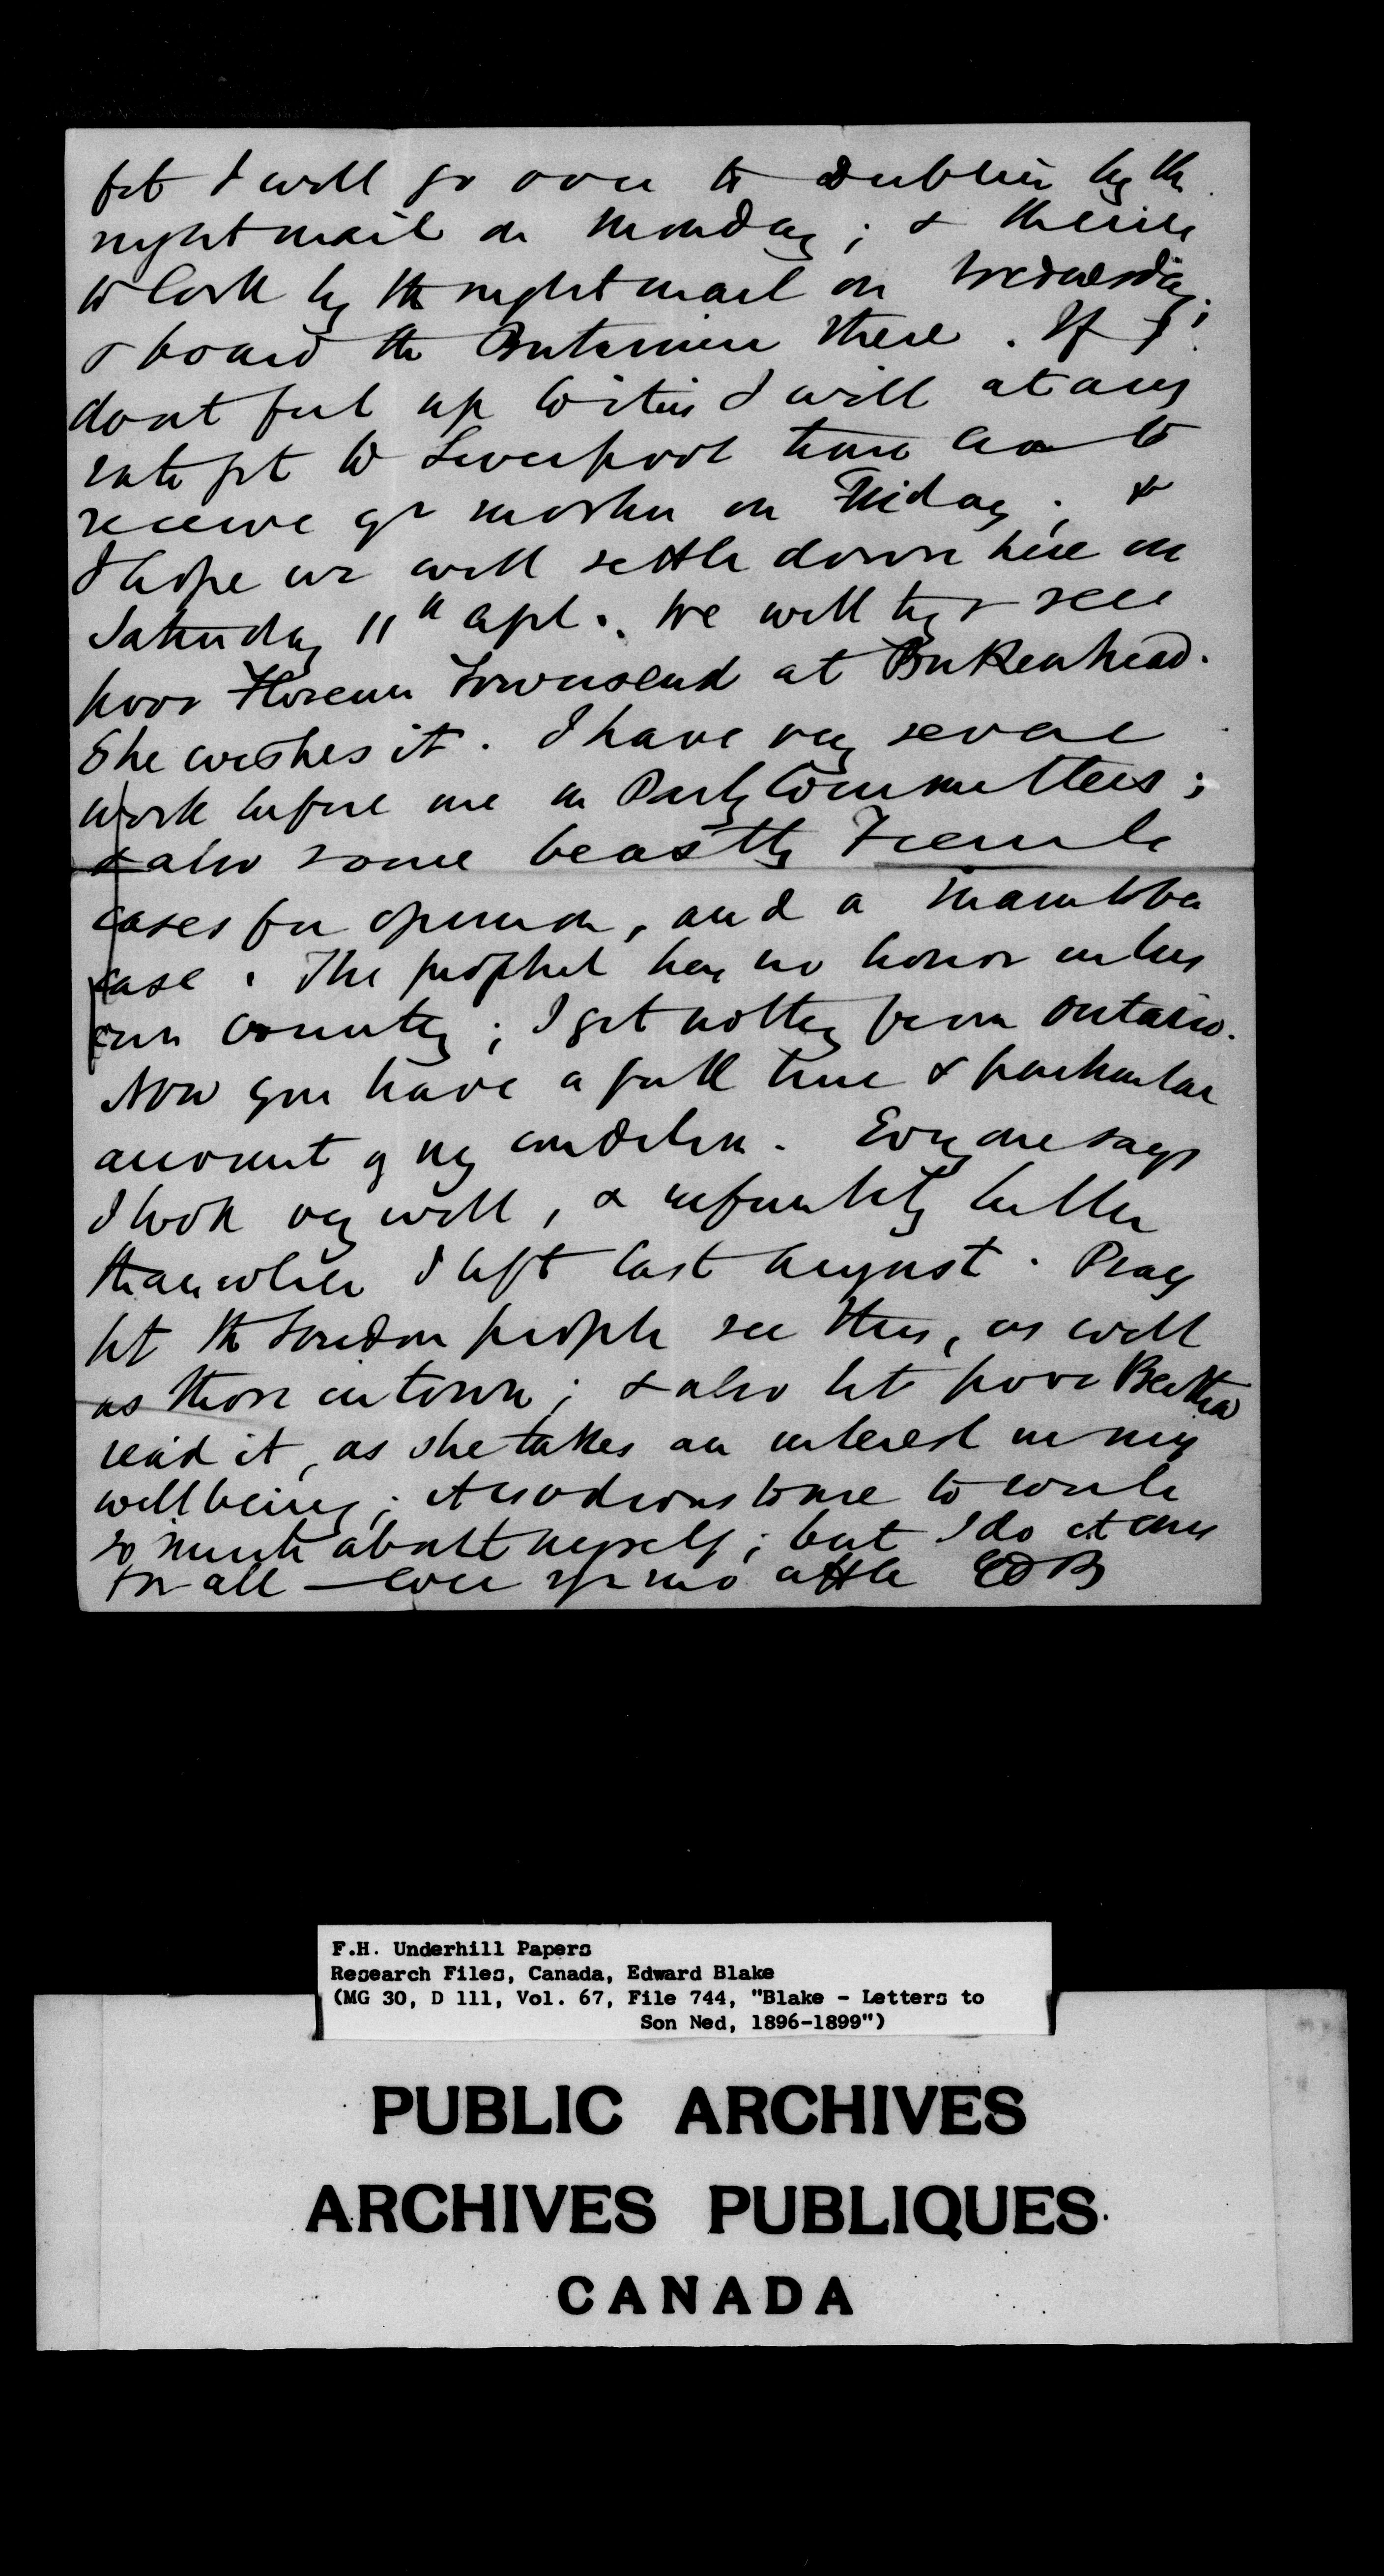 fit I will go over to Dublin by the
night mail on Monday; & thence
to Cork by the night mail on Wednesday;
& board the Britannic there. If I
dont feel up to this I will at any
rate get to Liverpool time eno to
receive yr mother on Friday; &
I hope we will settle down here on
Saturday 11th Apl. We will try & see
poor Florence Townsend at Birkenhead.
She wishes it. I have very severe
work before me in Party Committees;
& also some beastly French
cases for opinion, and a Manitoba
case. The prophet has no honor in his
own country; I get nothing from Ontario.
Now you have a full true & particular
account of my condition. Everyone says
I look very well, & infinitely better
than when I left last August. Pray
let the London people see this, as well
as those in town; & also let poor Bertha
read it, as she takes an interest in my
well being; it is odious to me to write
so much about myself; but I do it once
for all — Ever yr mo afftte EdB
F.H. Underhill Papers
Research Files, Canada, Edward Blake
(MG 30, D 111, Vol. 67, File 744, "Blake - Letters to
Son Ned, 1896-1899")
PUBLIC ARCHIVES
ARCHIVES PUBLIQUES
CANADA